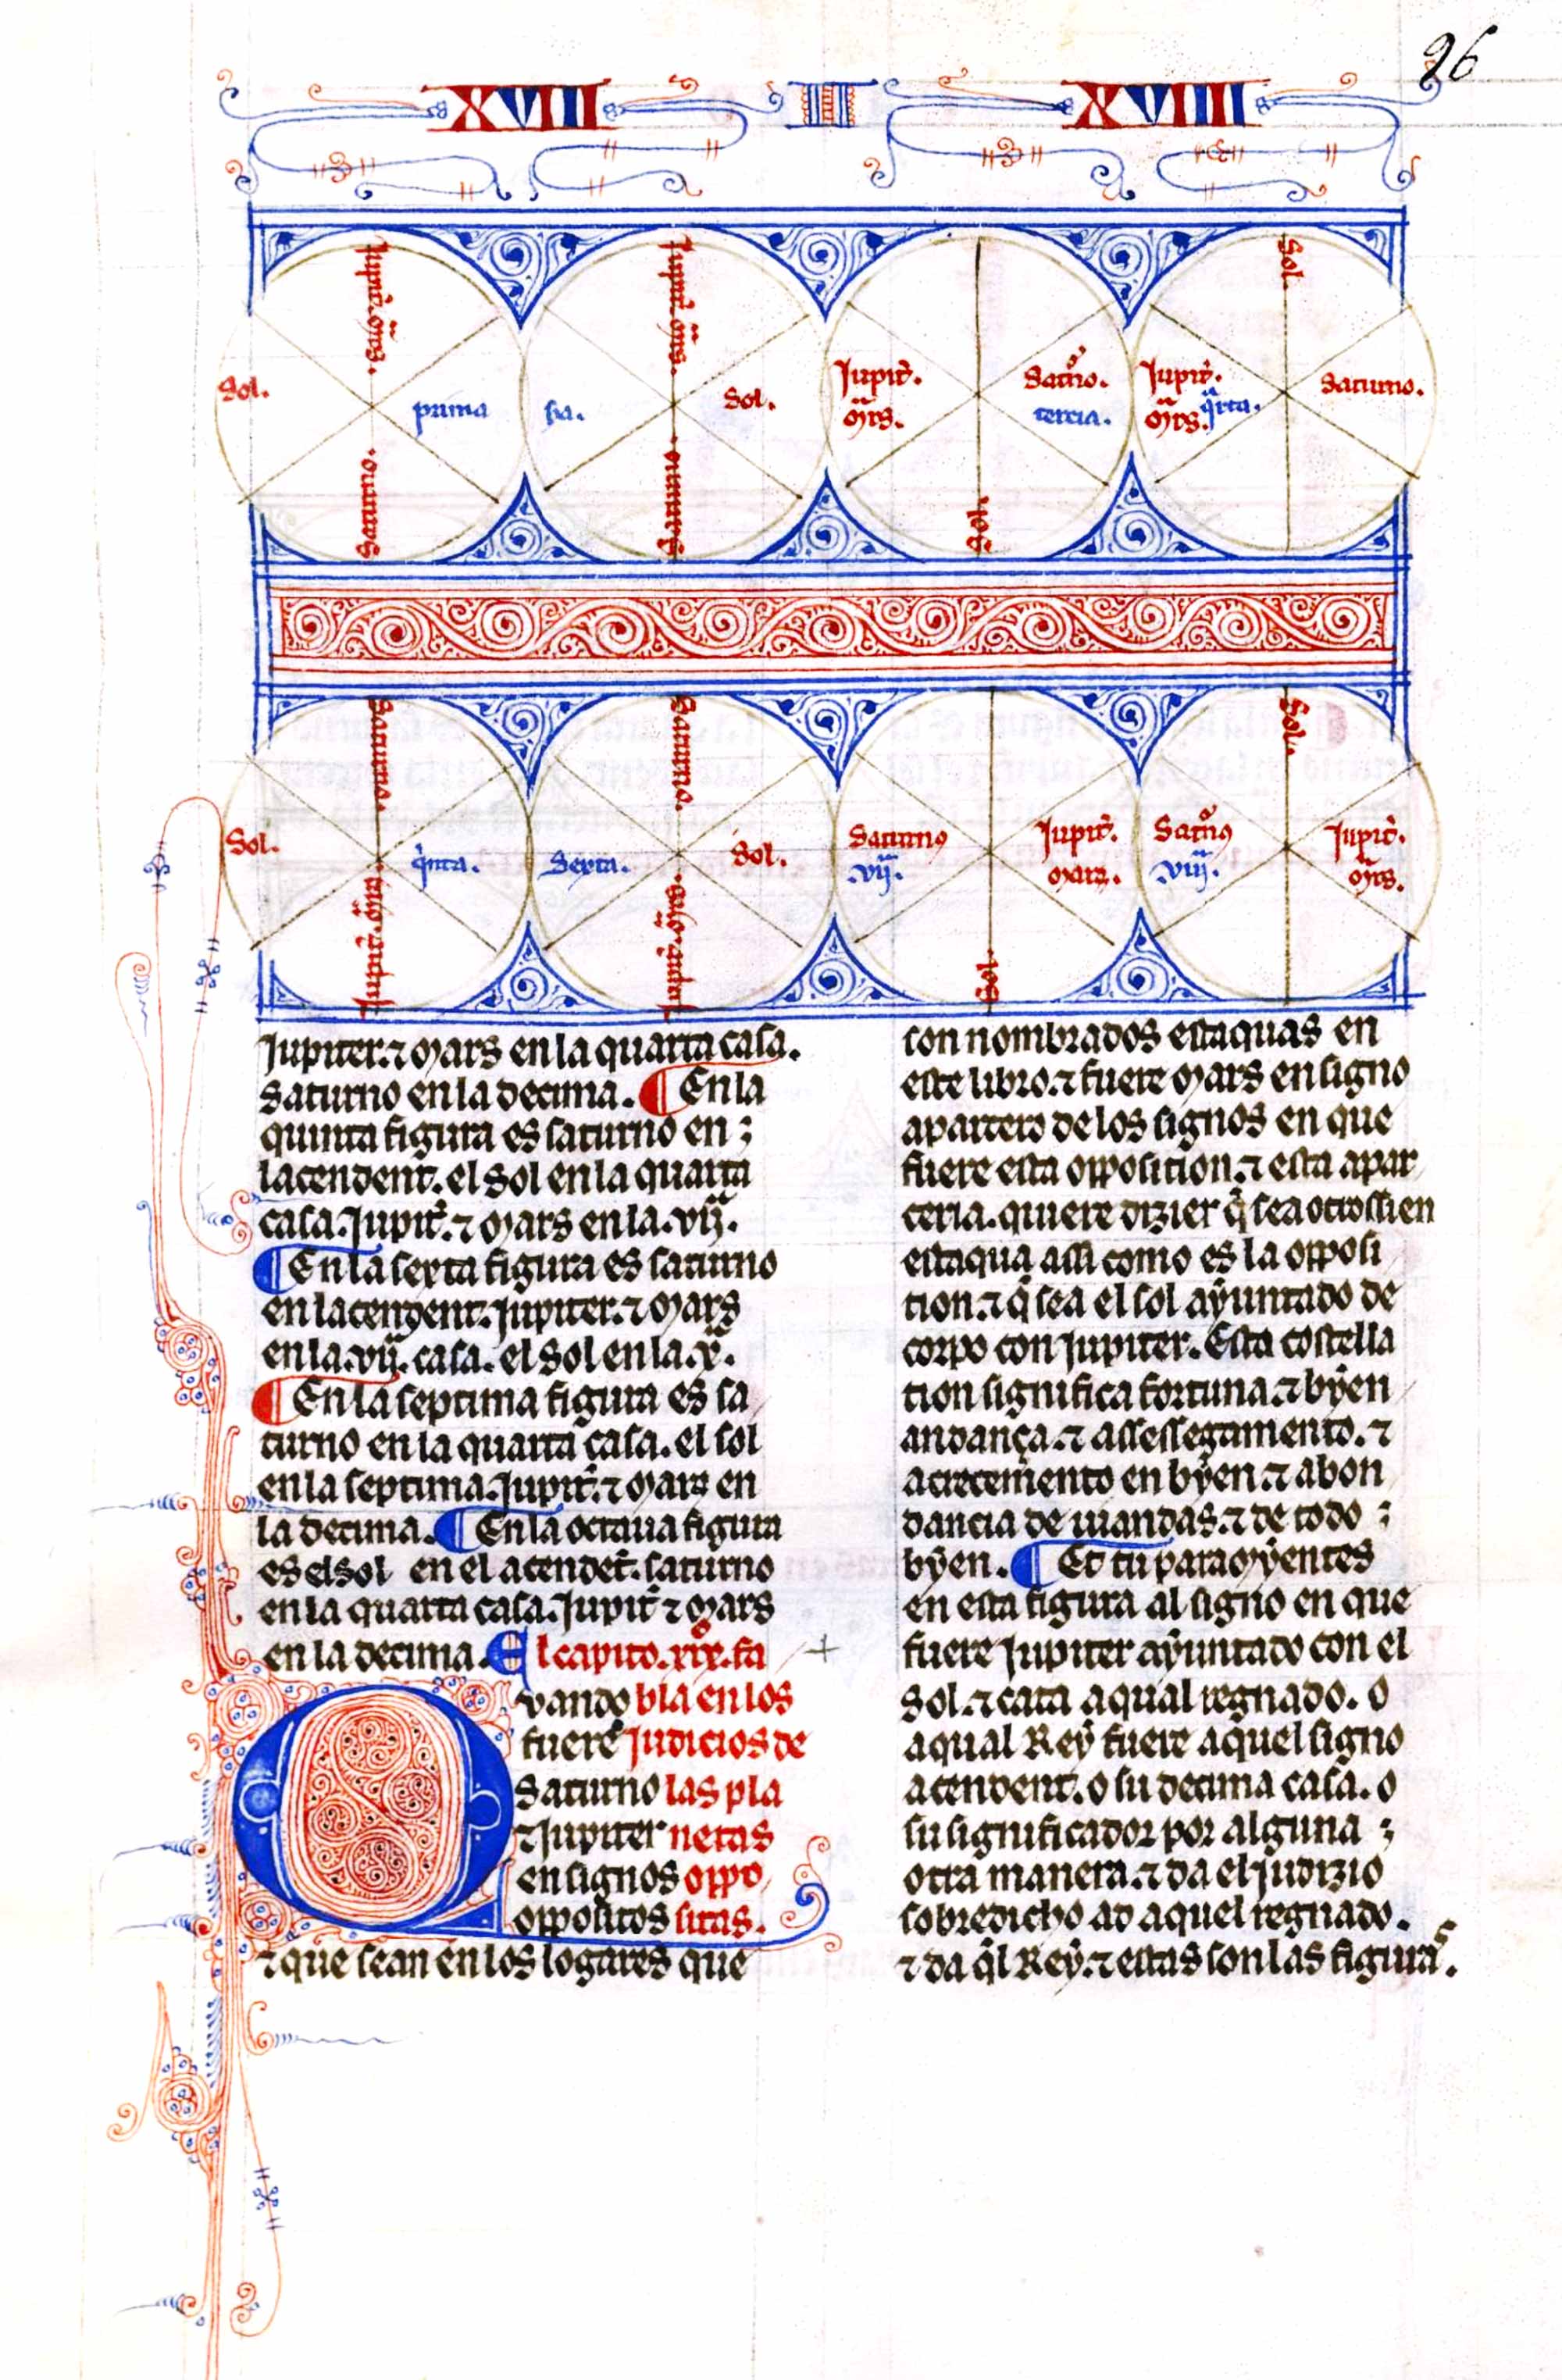 96
XVIII III XVIIII
Jupit̃. m̃rs.
Saturno.
Sol.
prima
Jupit̃. m̃rs.
Saturno.
Sol.
sa.
Jupit̃.
m̃rs.
Sat̃no.
tercia.
Sol.
Sol.
Jupit̃.
m̃rs.
q̃rta.
Saturno.
Saturno.
Sol.
q̃nta.
Jupit̃. m̃rs.
Saturno.
Sexta.
Sol.
Jupit̃. m̃rs.
Saturno
.vij.
Jupit̃.
marz.
Sol.
Sol.
Sat̃no
.viij.
Jupit̃.
m̃rs.
Jupiter. ⁊ mars en la quarta casa.
Saturno en la decima. ¶ En la
quinta figura es saturno en ;
lacendent. el Sol en la quarta
casa. Jupit̃. ⁊ mars en la .vij.
¶ En la sexta figura es saturno
en lacendent. Jupiter. ⁊ mars
en la .vij. casa. el Sol en la .x.
¶ En la septima figura es sa
turno en la quarta casa. el sol
en la septima. Jupit̃. ⁊ marz en
la decima. ¶ En la octaua figura
es el sol en el acendẽt. saturno
en la quarta casa. Jupit̃ ⁊ mars
en la decima. El capito. xix. fa
bla en los
judicios de
las pla
netas
oppo
sitas.
Quando
fuerẽ
Saturno
⁊ Jupiter
en signos
oppositos
⁊ que sean en los logares que
son nombrados estaquas en
este libro. ⁊ fuere mars en signo
apartero de los signos en que
fuere esta opposicion. ⁊ esta apar
ceria. quiere dizier q̃ sea otrossi en
estaqua assi como es la opposi
tion. ⁊ q̃ sea el sol ayuntado de
corpo con Jupiter. Esta costella
tion significa fortuna. ⁊ byen
andança. ⁊ assessegamiento. ⁊
acrecemiento en byen. ⁊ abon
dancia de uiandas. ⁊ de todo ;
byen. ¶ Et tu para myentes
en esta figura al signo en que
fuere Jupiter ayuntado con el
Sol. ⁊ cata a qual regnado. o
a qual Rey fuere aquel signo
acendent. o su decima casa. o
su significador por alguna ;
otra manera. ⁊ da el judizio
sobredicho ad aquel regnado.
⁊ da q̃l Rey. ⁊ estas son las figuras.